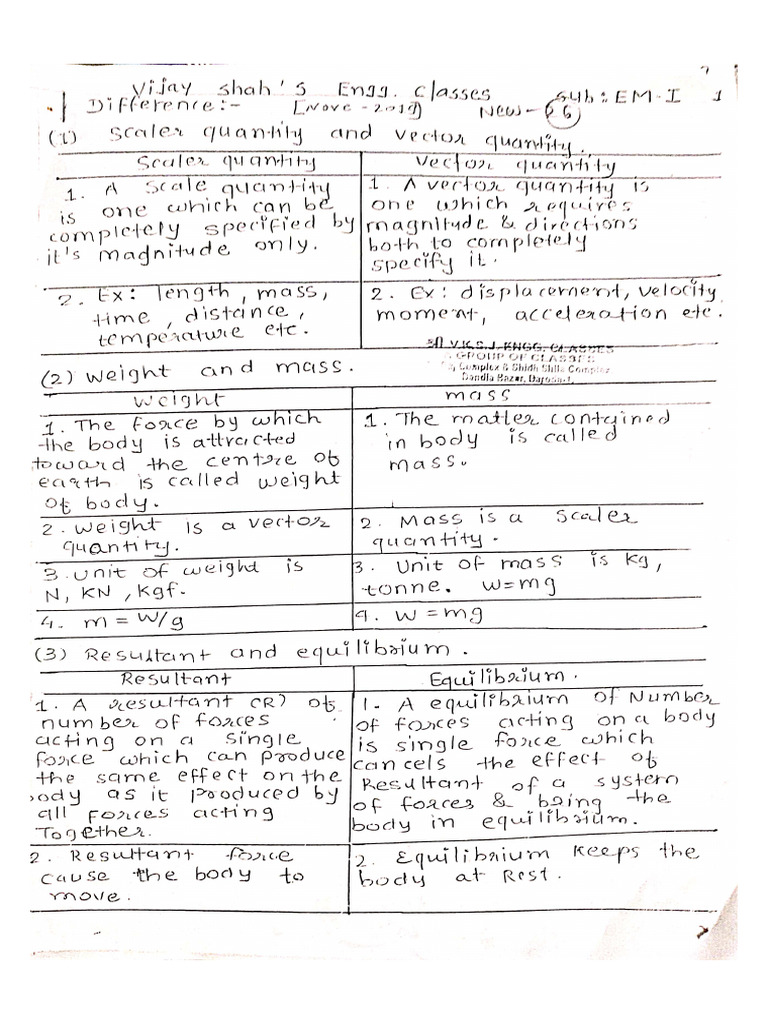 Vijay Shah's Engg. Classes Sub: EM-I 1
Difference:- [Nove-2019] New-
(1) Scaler quantity and vector quantity.
Scaler quantity | Vector quantity
1. A scale quantity | 1. A vector quantity is
is one which can be | one which requires
completely specified by | magnitude & directions
it's magnitude only. | both to completely
specify it.
2. Ex: length, mass, | 2. Ex: displacement, velocity,
time, distance, | moment, acceleration etc.
temperature etc.
V.K.S.J. ENGG. CLASSES
GROUP OF CLASSES
Complex & Shidh Shila Complex
Dandia Bazar, Baroda-1.
(2) Weight and mass.
Weight | mass
1. The force by which | 1. The matter contained
the body is attracted | in body is called
toward the centre of | mass.
earth is called weight
of body.
2. Weight is a vector | 2. Mass is a scaler
quantity. | quantity.
3. Unit of weight is | 3. Unit of mass is kg,
N, KN, kgf. | tonne. w=mg
4. m = W/g | 4. w = mg
(3) Resultant and equilibrium.
Resultant | Equilibrium.
1. A resultant (R) of | 1- A equilibrium of Number
number of forces | of forces acting on a body
acting on a single | is single force which
force which can produce | cancels the effect of
the same effect on the | Resultant of a system
body as it produced by | of forces & bring the
all forces acting | body in equilibrium.
Together.
2. Resultant force | 2. Equilibrium keeps the
cause the body to | body at Rest.
move.